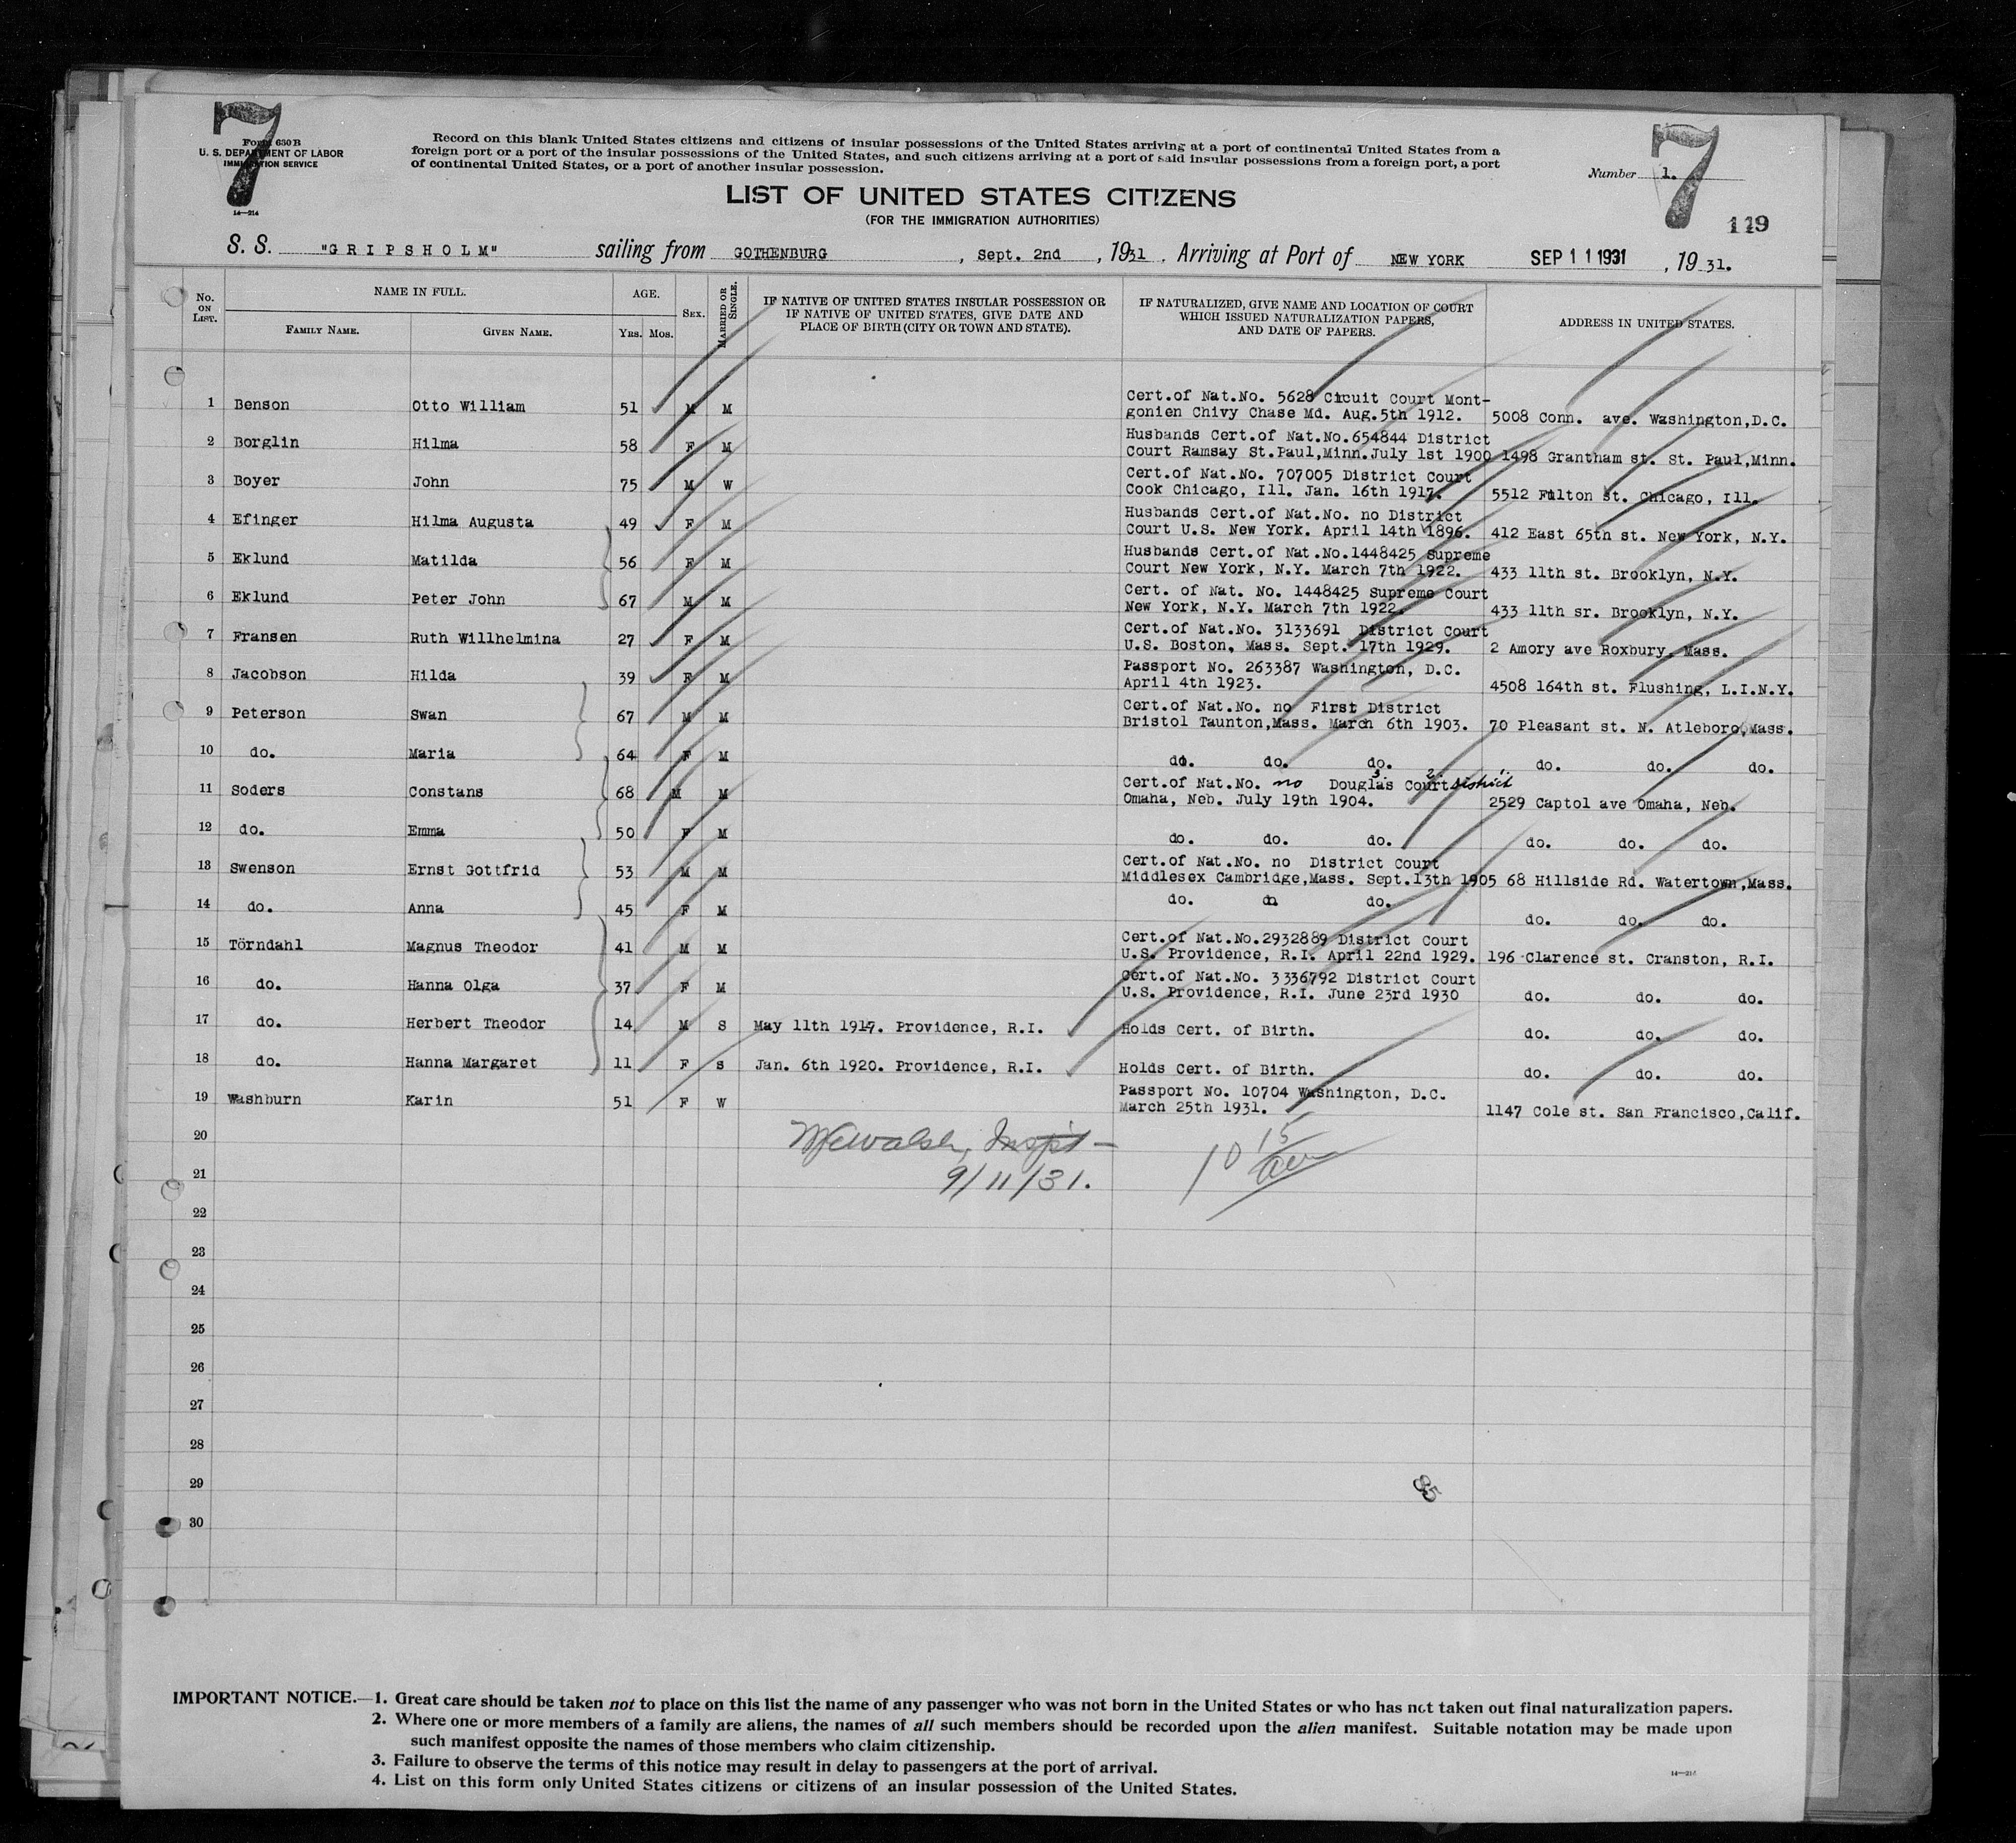 7
7
Form 630 B
U. S. DEPARTMENT OF LABOR
IMMIGRATION SERVICE
14—214
Record on this blank United States citizens and citizens of insular possessions of the United States arriving at a port of continental United States from a
foreign port or a port of the insular possessions of the United States, and such citizens arriving at a port of said insular possessions from a foreign port, a port
of continental United States, or a port of another insular possession.
Number 1.
LIST OF UNITED STATES CITIZENS
(FOR THE IMMIGRATION AUTHORITIES)
119
S. S. "GRIPSHOLM" sailing from GOTHENBURG, Sept. 2nd, 1931. Arriving at Port of NEW YORK SEP 11 1931, 1931.
No. ON LIST. NAME IN FULL. AGE. SEX. MARRIED OR SINGLE. IF NATIVE OF UNITED STATES INSULAR POSSESSION OR IF NATIVE OF UNITED STATES, GIVE DATE AND PLACE OF BIRTH (CITY OR TOWN AND STATE). IF NATURALIZED, GIVE NAME AND LOCATION OF COURT WHICH ISSUED NATURALIZATION PAPERS, AND DATE OF PAPERS. ADDRESS IN UNITED STATES.
FAMILY NAME. GIVEN NAME. YRS. MOS.
Cert.of Nat.No. 5628 Circuit Court Mont-
1 Benson Otto William 51 M M gonien Chivy Chase Md. Aug.5th 1912. 5008 Conn. ave. Washington,D.C.
Husbands Cert.of Nat.No.654844 District
2 Borglin Hilma 58 F M Court Ramsay St.Paul,Minn.July 1st 1900 1498 Grantham st. St. Paul,Minn.
Cert.of Nat.No. 707005 District Court
3 Boyer John 75 M W Cook Chicago, Ill. Jan. 16th 1917. 5512 Fulton st. Chicago, Ill.
Husbands Cert.of Nat.No. no District
4 Efinger Hilma Augusta 49 F M Court U.S. New York. April 14th 1896. 412 East 65th st. New York, N.Y.
Husbands Cert.of Nat.No.1448425 Supreme
5 Eklund Matilda 56 F M Court New York, N.Y. March 7th 1922. 433 11th st. Brooklyn, N.Y.
Cert. of Nat. No. 1448425 Supreme Court
6 Eklund Peter John 67 M M New York, N.Y. March 7th 1922. 433 11th sr. Brooklyn, N.Y.
Cert.of Nat.No. 3133691 District Court
7 Fransen Ruth Willhelmina 27 F M U.S. Boston, Mass. Sept. 17th 1929. 2 Amory ave Roxbury, Mass.
Passport No. 263387 Washington, D.C.
8 Jacobson Hilda 39 F M April 4th 1923. 4508 164th st. Flushing, L.I.N.Y.
Cert.of Nat.No. no First District
9 Peterson Swan 67 M M Bristol Taunton,Mass. March 6th 1903. 70 Pleasant st. N. Atleboro,Mass.
10 do. Maria 64 F M do. do. do. do. do. do.
3. 2. 1.
Cert.of Nat.No. no Douglas Court District
11 Soders Constans 68 M M Omaha, Neb. July 19th 1904. 2529 Captol ave Omaha, Neb.
12 do. Emma 50 F M do. do. do. do. do. do.
Cert.of Nat.No. no District Court
13 Swenson Ernst Gottfrid 53 M M Middlesex Cambridge,Mass. Sept.13th 1905 68 Hillside Rd. Watertown,Mass.
14 do. Anna 45 F M do. do. do. do. do.
Cert.of Nat.No.2932889 District Court
15 Törndahl Magnus Theodor 41 M M U.S. Providence, R.I. April 22nd 1929. 196 Clarence st. Cranston, R.I.
Cert.of Nat.No. 3336792 District Court
16 do. Hanna Olga 37 F M U.S. Providence, R.I. June 23rd 1930 do. do. do.
17 do. Herbert Theodor 14 M S May 11th 1917. Providence, R.I. Holds Cert. of Birth. do. do. do.
18 do. Hanna Margaret 11 F S Jan. 6th 1920. Providence, R.I. Holds Cert. of Birth. do. do. do.
Passport No. 10704 Washington, D.C.
19 Washburn Karin 51 F W March 25th 1931. 1147 Cole st. San Francisco,Calif.
20 Walsh, Insp't —
10 15 am
21 9/11/31.
22
23
24
25
26
27
28
29
85
30
IMPORTANT NOTICE.—1. Great care should be taken not to place on this list the name of any passenger who was not born in the United States or who has not taken out final naturalization papers.
2. Where one or more members of a family are aliens, the names of all such members should be recorded upon the alien manifest. Suitable notation may be made upon
such manifest opposite the names of those members who claim citizenship.
3. Failure to observe the terms of this notice may result in delay to passengers at the port of arrival.
4. List on this form only United States citizens or citizens of an insular possession of the United States.
14—214